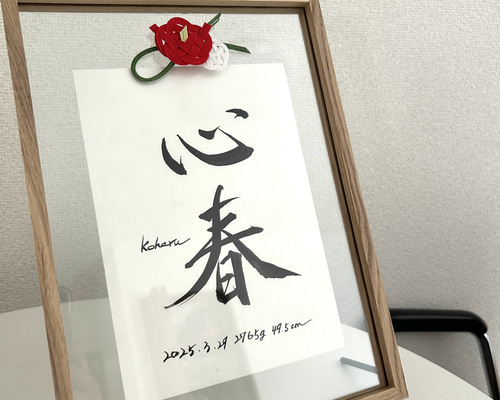 心春
Koharu
2025.3.29 2765g 49.5cm